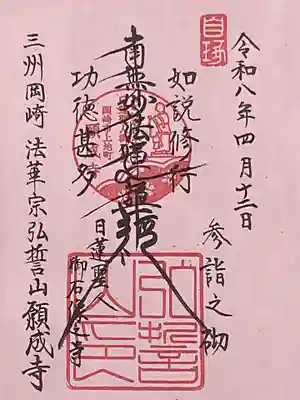 令和八年四月十二日
参詣之砌
如説修行
南無妙法蓮華経
功徳甚多
日蓮聖人
三州岡崎 法華宗弘誓山願成寺
岡崎市上地町